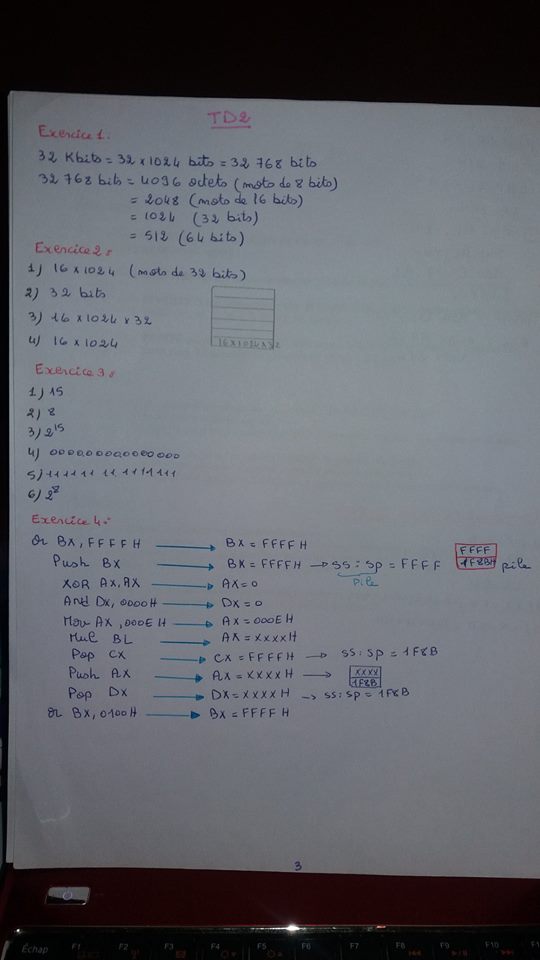 TD2
Exercice 1:
32 Kbits = 32 x 1024 bits = 32 768 bits
32 768 bits = 4096 octets (mots de 8 bits)
= 2048 (mots de 16 bits)
= 1024 (32 bits)
= 512 (64 bits)
Exercice 2:
1) 16 x 1024 (mots de 32 bits)
2) 32 bits
3) 16 x 1024 x 32
16x1024x32
4) 16 x 1024
Exercice 3:
1) 15
2) 8
3) 2^15
4) 000000000000000
5) 111111111111111
6) 2^8
Exercice 4:
Or BX, FFFFH → BX = FFFFH
Push BX → BX = FFFFH → SS : SP = FFFF
FFFF
1F8BH pile
pile
XOR AX, AX → AX = 0
And DX, 0000H → DX = 0
Mov AX, 000EH → AX = 000EH
Mul BL → AX = XXXXH
Pop CX → CX = FFFFH → SS : SP = 1F8B
Push AX → AX = XXXXH →
XXXX
1F8B
Pop DX → DX = XXXXH → SS : SP = 1F8B
Or BX, 0100H → BX = FFFFH
3
Échap F1 F2 F3 F4 F5 F6 F7 F8 F9 F10